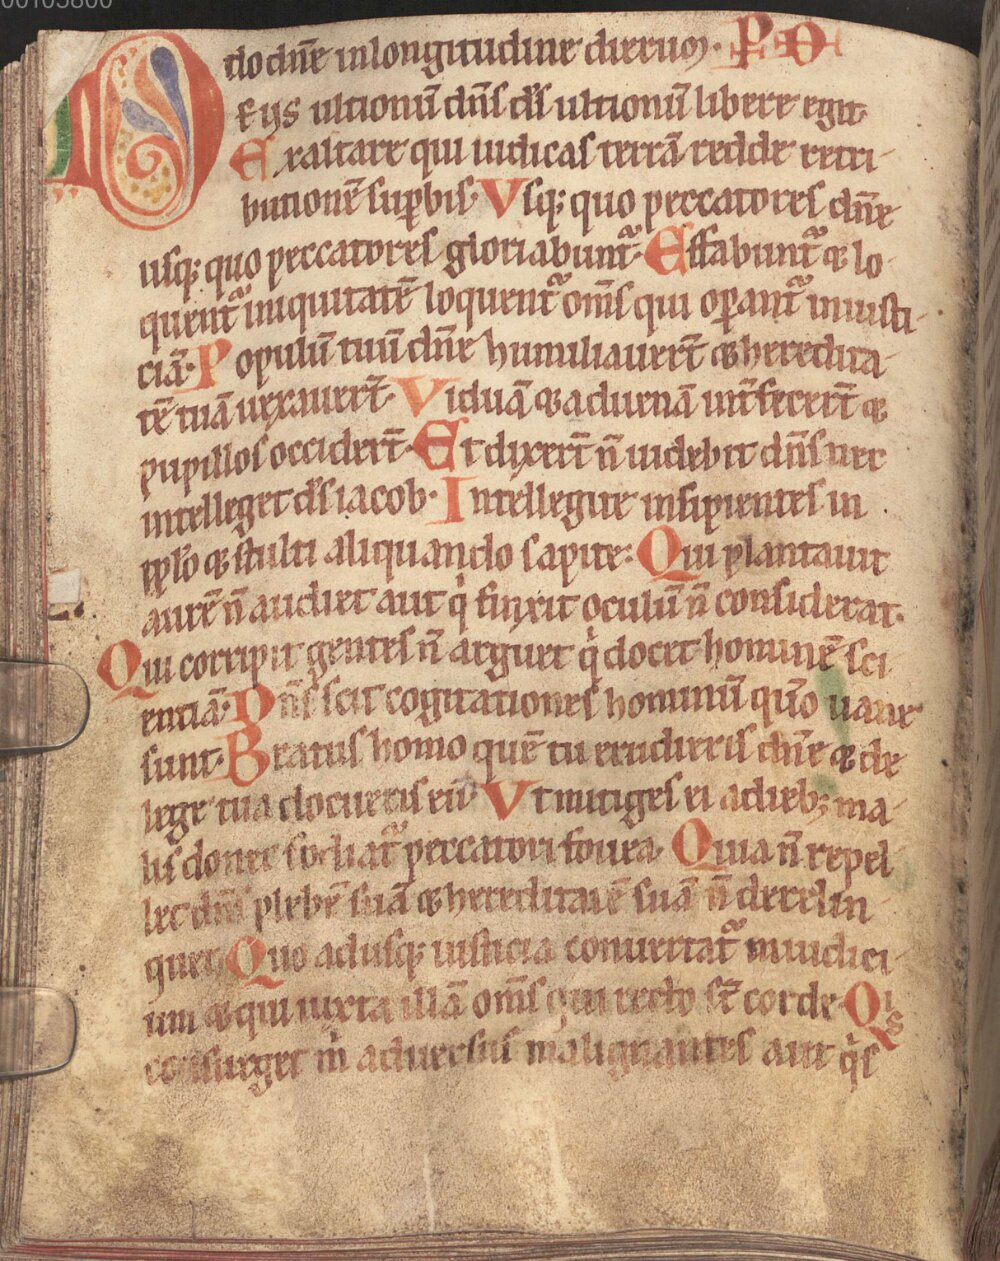 00105800
do dnē in longitudine dieruꝫ· P̄ D
D Eus ultionū dn̄s ds̄ ultionū libere egit·
Exaltare qui iudicas terrā redde retri-
butionē suꝑbis· Vsq; quo peccatores dn̄e
usq; quo peccatores gloriabunt᷑· Effabunt᷑ & lo-
quent᷑ iniquitatē loquent᷑ om̄s qui oꝑant᷑ iniusti-
ciā· Populū tuū dn̄e humiliauert̄ & heredita-
tē tuā uexauert̄· Viduā & aduenā int̄fecert̄ &
pupillos occidert̄· Et dixert̄ n̄ uidebit dn̄s nec
intelleget ds̄ iacob· Intellegite insipientes in
pplō & stulti aliquando sapite· Qui plantauit
aurē n̄ audiet aut q̇ finxit oculū n̄ considerat·
Qui corripit gentes n̄ arguet q̇ docet hominē sci-
entiā· Dn̄s scit cogitationes hominū qūo uane
sunt· Beatus homo quē tu erudieris dn̄e & de
lege tua docueris eū· Vt mitiges ei a dieb; ma-
lis donec fodiat᷑ peccatori fouea· Quia n̄ repel-
let dn̄s plebē suā & hereditatē suā n̄ derelin-
quet· Quo adusq; iusticia conuertat᷑ in iudici-
um & qui iuxta illā om̄s qui recto st̄ corde· Qis
consurget ṁ aduersus malignantes aut q̇s